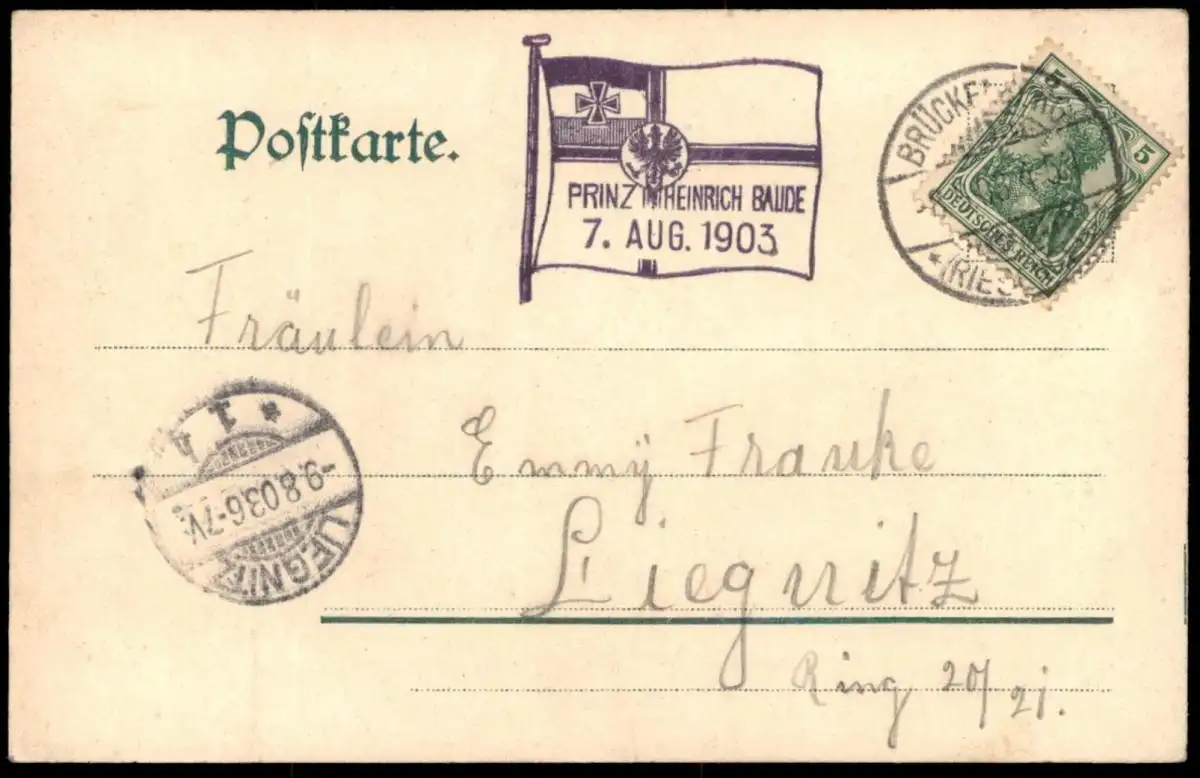 Postkarte.
PRINZ HEINRICH BAUDE
7. AUG. 1903
5
5
DEUTSCHES REICH
Fräulein
Emmÿ Franke
Liegnitz
Ring 20/21.
LIEGNITZ
-9.8.03.6-7V.
* 1